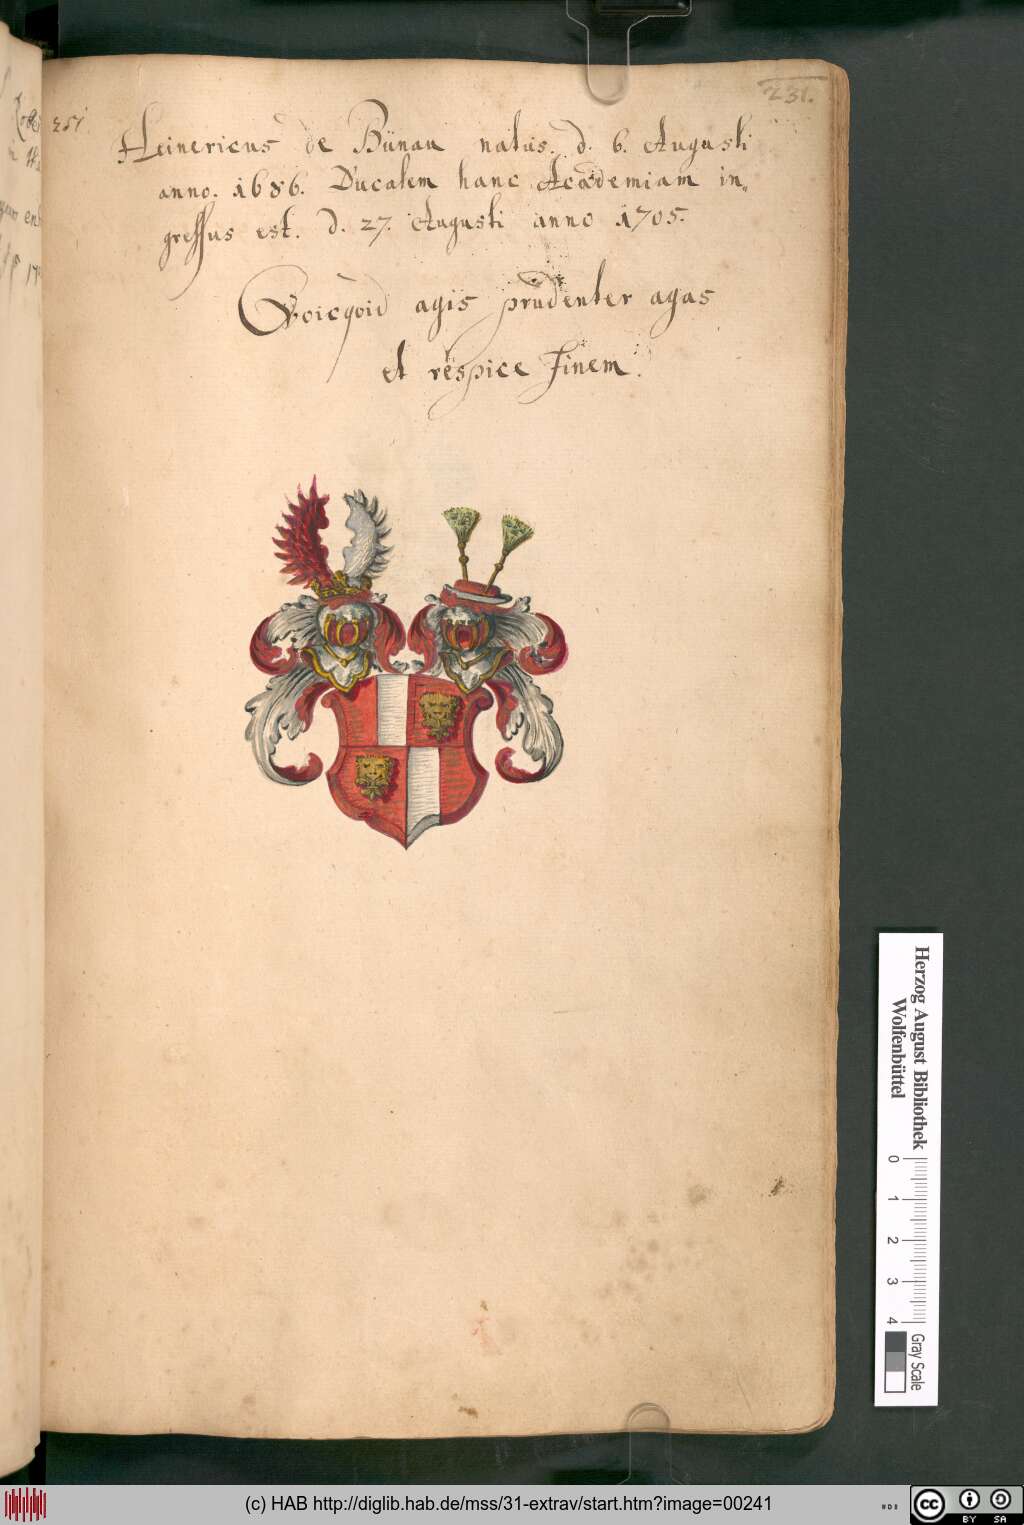 231.
251
Heinericus de Bünau natus. d. 6. Augusti
anno. 1686. Ducalem hanc Academiam in„
gressus est. d. 27. Augusti anno 1705.
Qvicqvid agis prudenter agas
et respice Finem.
Herzog August Bibliothek
Wolfenbüttel
0 1 2 3 4
Gray Scale
(c) HAB http://diglib.hab.de/mss/31-extrav/start.htm?image=00241
cc BY SA